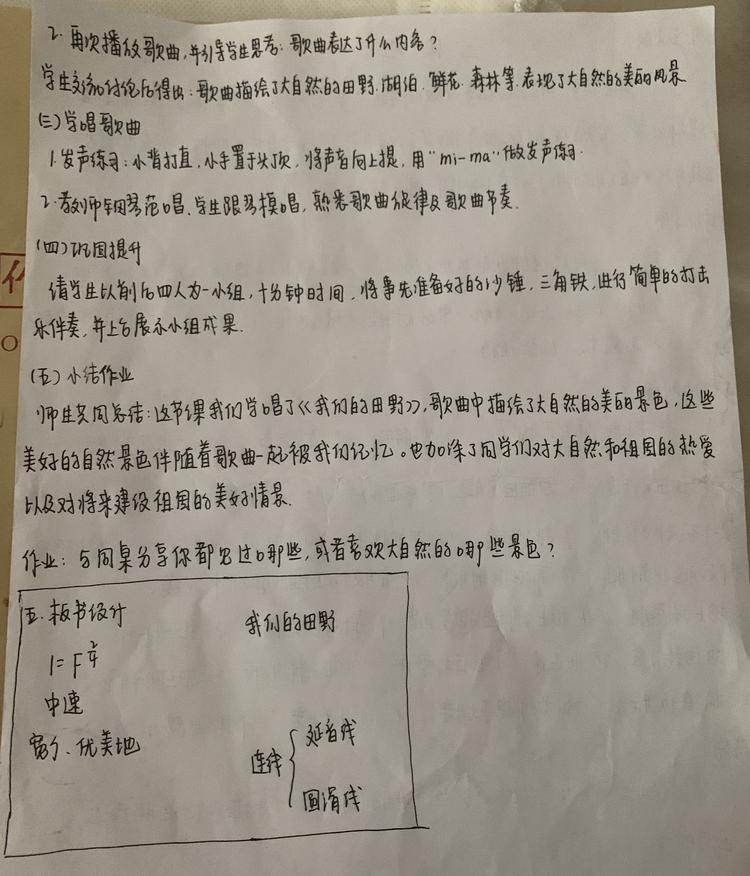 2. 再次播放歌曲,并引导学生思考:歌曲表达了什么内容?
学生交流讨论后得出:歌曲描绘了大自然的田野.湖泊.鲜花.森林等.表现了大自然的美丽风景
(三)学唱歌曲
1.发声练习:小背打直,小手置于头顶,将声音向上提,用“mi-ma”做发声练习.
2.教师钢琴范唱、学生跟琴模唱,熟悉歌曲旋律及歌曲节奏.
(四)巩固提升
请学生以前后四人为一小组,十分钟时间,将事先准备好的沙锤,三角铁,进行简单的打击
乐伴奏,并上台展示小组成果.
(五)小结作业
师生共同总结:这节课我们学唱了《我们的田野》,歌曲中描绘了大自然的美丽景色,这些
美好的自然景色伴随着歌曲一起被我们记忆。也加深了同学们对大自然和祖国的热爱
以及对将来建设祖国的美好情景.
作业:与同桌分享你都见过哪些,或者喜欢大自然的哪些景色?
五.板书设计
我们的田野
1=F 2/4
中速
宽广、优美地
连线{
延音线
圆滑线